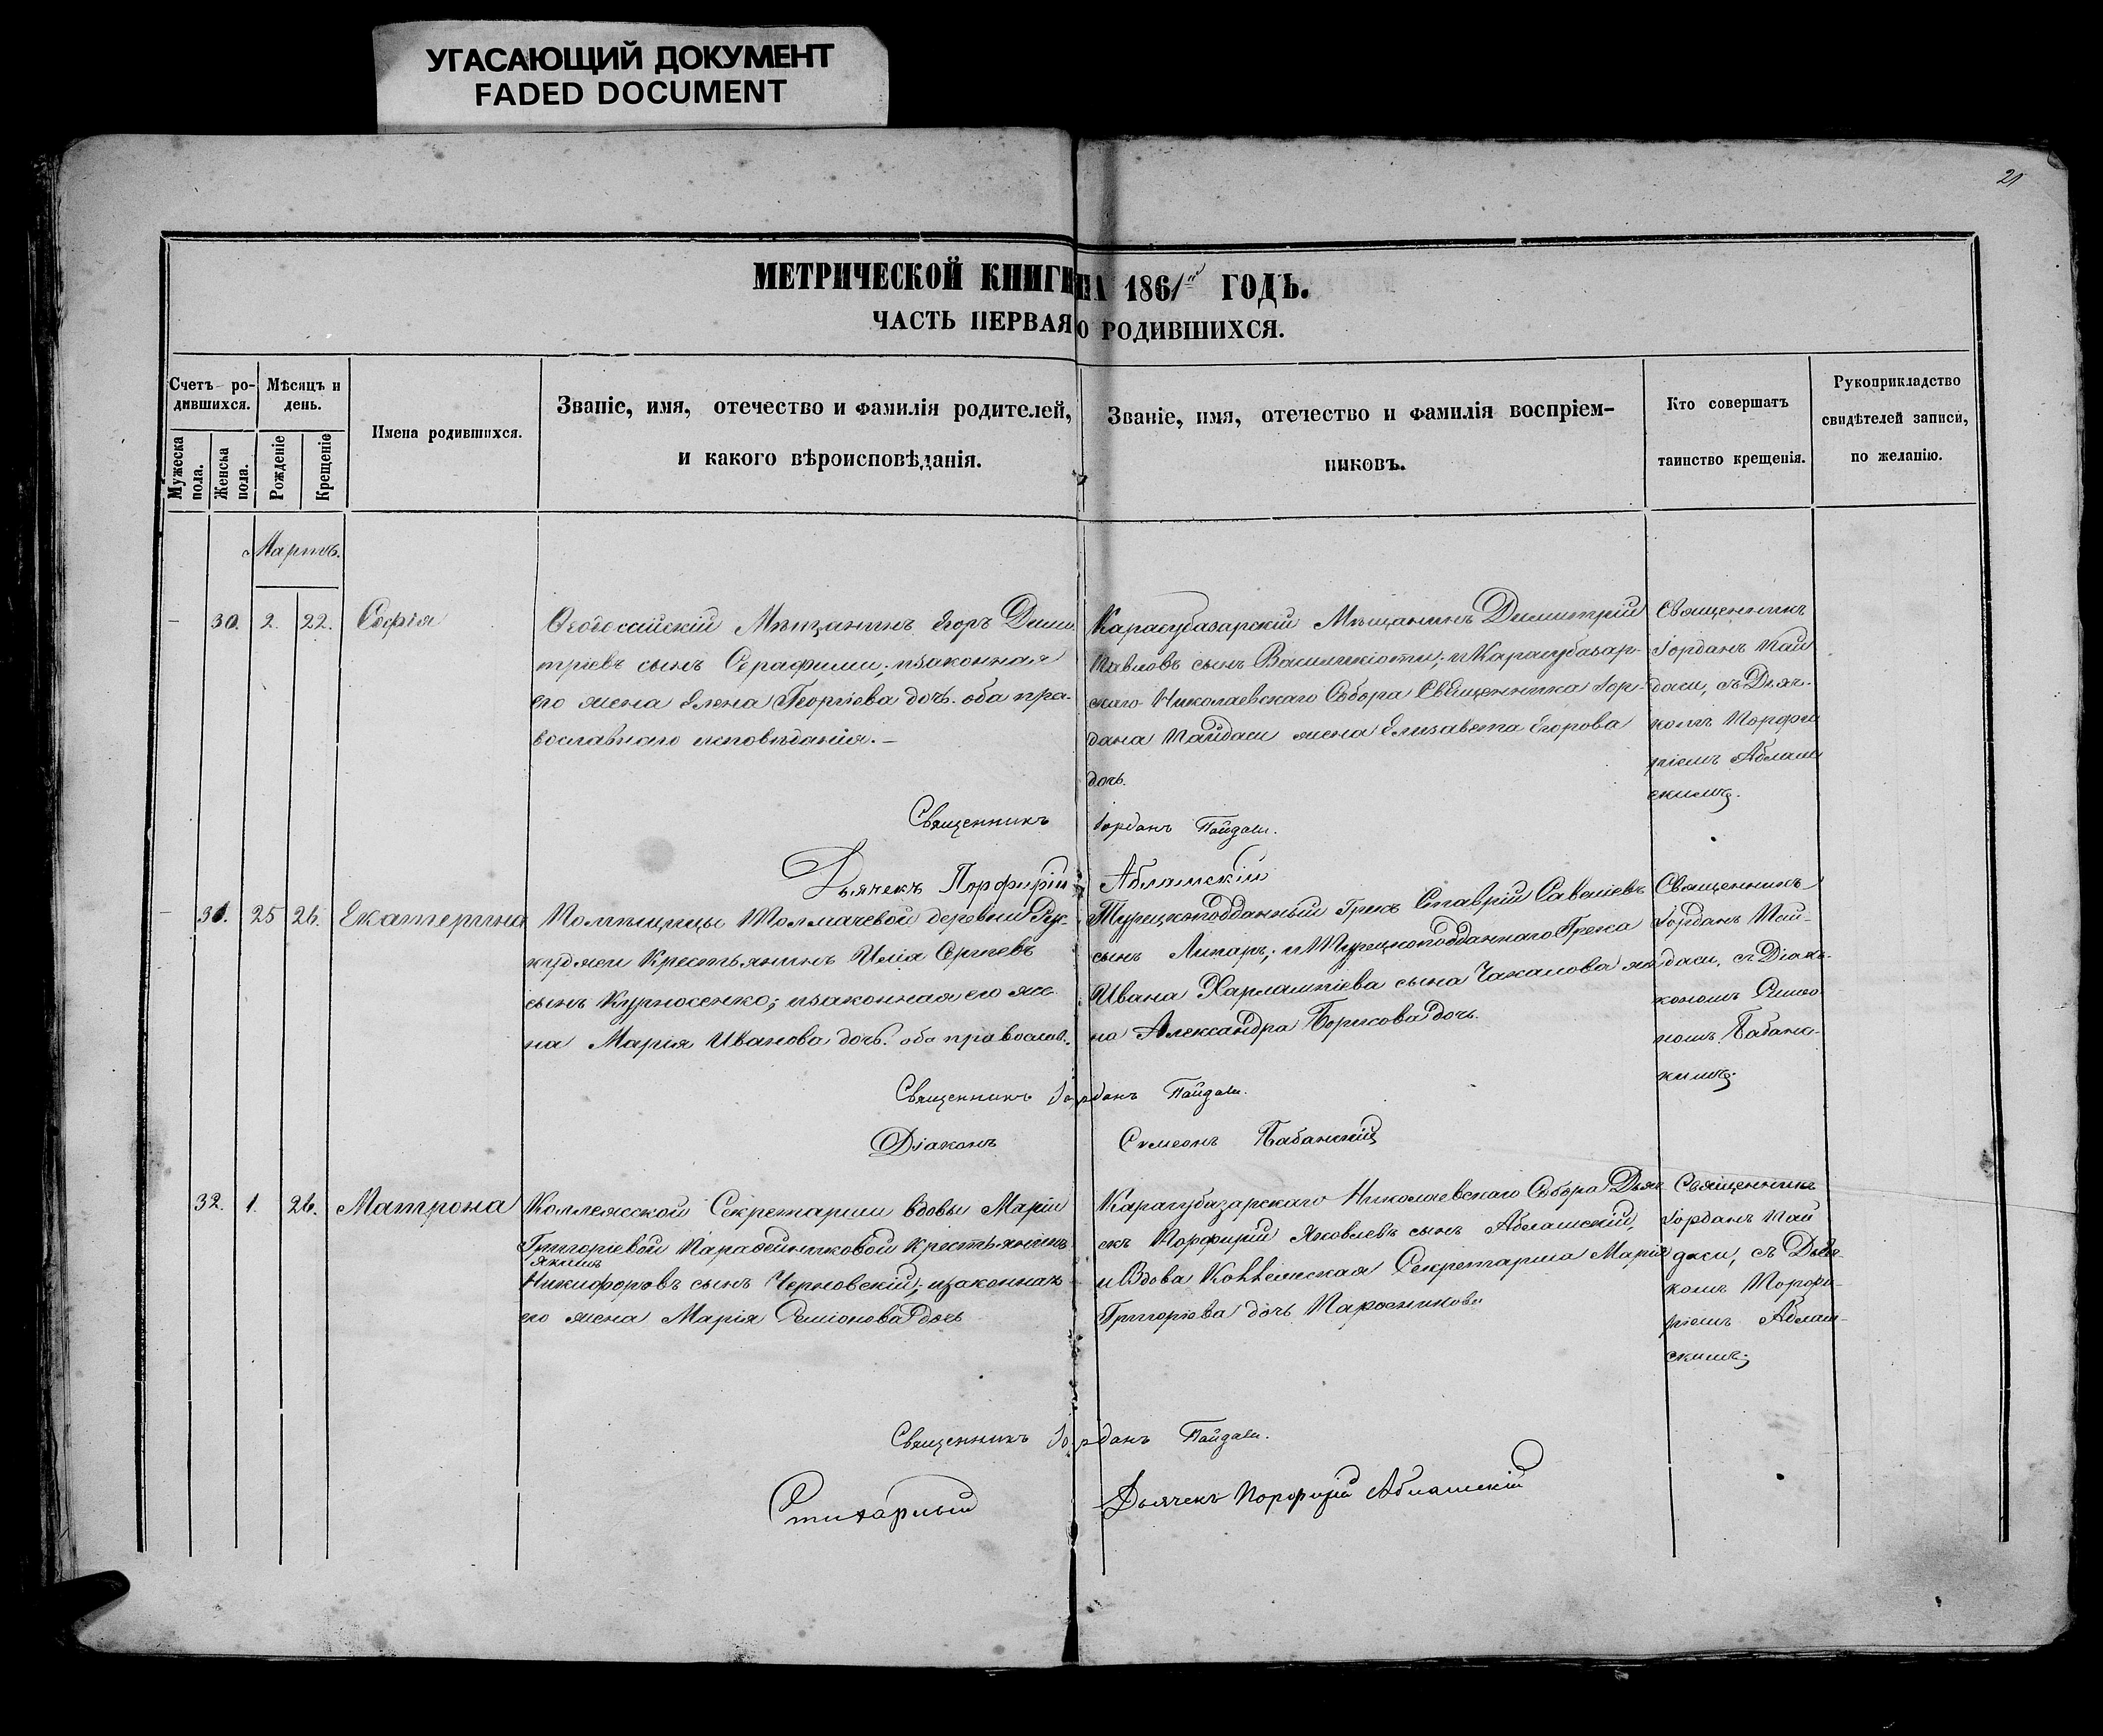 УГАСАЮЩИЙ ДОКУМЕНТ
FADED DOCUMENT
21
МЕТРИЧЕСКОЙ КНИГИ НА 1861й ГОДЪ.
ЧАСТЬ ПЕРВАЯ О РОДИВШИХСЯ.
Счетъ ро-
дившихся.
Мужеска
пола.
Женска
пола.
Мѣсяцъ и
день.
Рожденіе
Крещеніе
Имена родившихся.
Званіе, имя, отечество и фамилія родителей,
и какого вѣроисповѣданія.
Званіе, имя, отечество и фамилія воспріем-
никовъ.
Кто совершатъ
таинство крещенія.
Рукоприкладство
свидѣтелей записи,
по желанію.
Мартъ.
30. 2. 22. Софія
Ѳеодосійскій Мѣщанинъ Егоръ Дими
тріевъ сынъ Серафими; и законная
его жена Елена Георгіева дочь. оба пра-
вославнаго исповѣданія.—
Карасубазарскій Мѣщанинъ Димитрій
Павловъ сынъ Василикіоти; и Карасубазар-
скаго Николаевскаго Собора Священника Іор-
дана Пайдаси жена Елизавета Егорова
дочь.
Священникъ
Іорданъ Пай
даси, съ Дьяч-
комъ Порфи
ріемъ Аблаш
скимъ.
Священникъ Іорданъ Пайдаси.
Дьячекъ Порфирій Аблашскій
31. 25 26. Екатерина
Помѣщицы Толмачевой деревни
Крестьянинъ Илія Сергѣевъ
сынъ Курносенко; и законная его же-
на Марія Иванова дочь. оба православ.
Турецкоподданный Грекъ Ставрій Савеліевъ
сынъ Липаръ; и Турецкоподданнаго Грека
Ивана Харлампіева сына Чакалова же
на Александра Борисова дочь.
Священникъ
Іорданъ Пай-
даси, съ Діа-
кономъ Симео
номъ Бабанс-
кимъ.
Священникъ Іорданъ Пайдаси.
Діаконъ Симеонъ Бабанскій
32. 1. 26. Матрона
Коллежской Секретарши вдовы Маріи
Григоріевой Паравейниковой Крестьянинъ
Никифоровъ сынъ Черновскій; и законная
его жена Марія Симіонова дочь
Карасубазарскаго Николаевскаго Собора Дьяч
екъ Порфирій Яковлевъ сынъ Аблашскій,
и Вдова Коллежская Секретарша Марія
Григоріева дочь
Священникъ
Іорданъ Пай
даси, съ Дьяч-
комъ Порфи-
ріемъ Аблаш-
скимъ.
Священникъ Іорданъ Пайдаси.
Стихарный Дьячекъ Порфирій Аблашскій